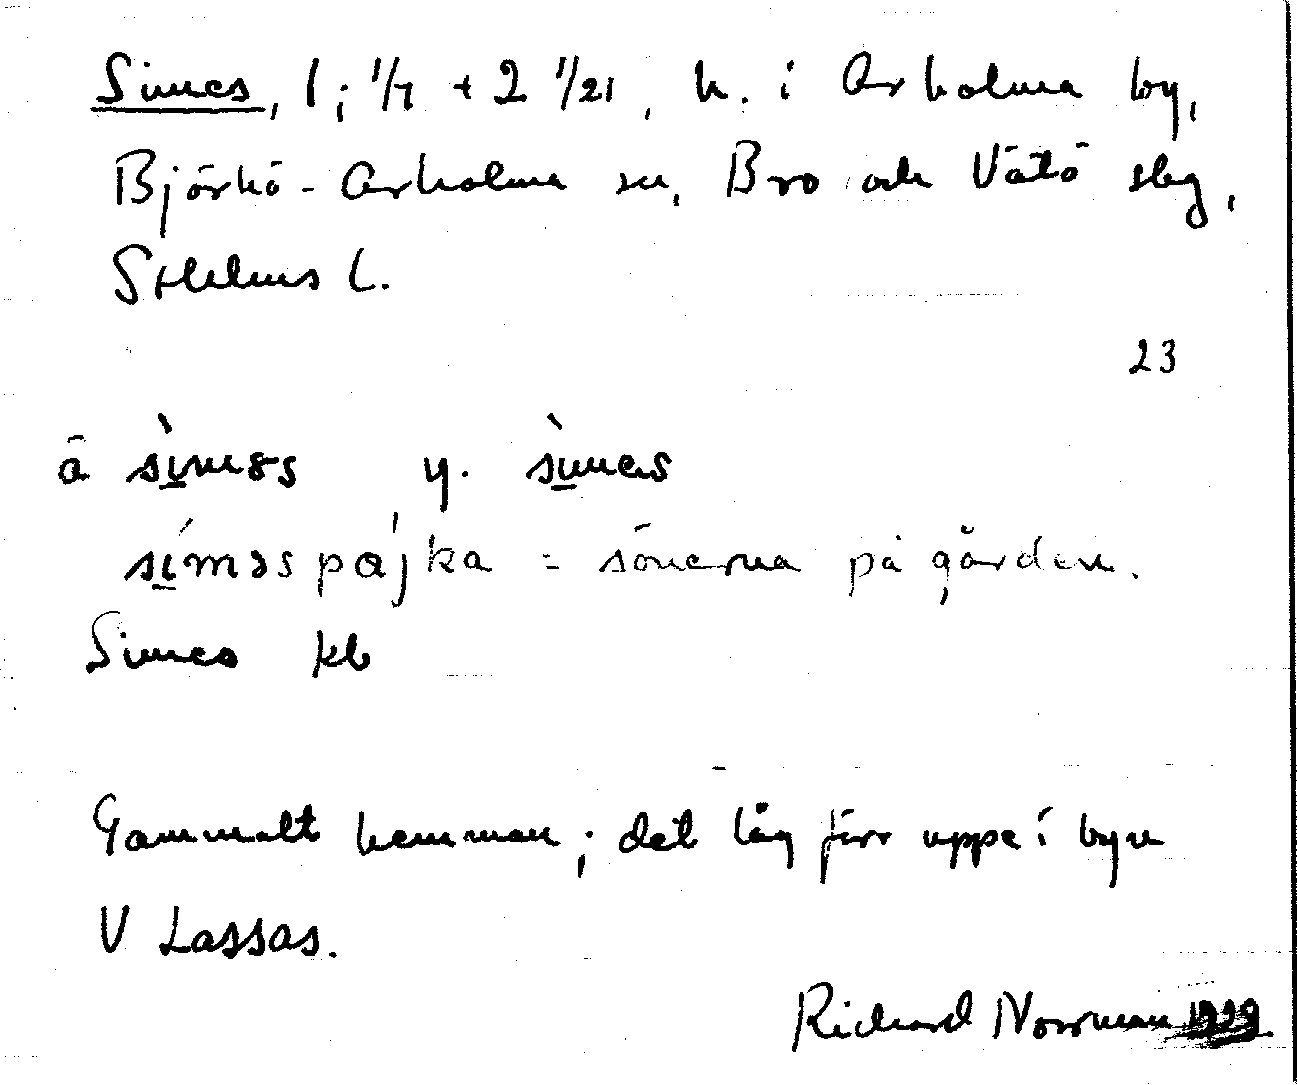 Simes, 1; 1/7 + 2 1/21, h. i Arholma by,
Björkö-Arholma sn, Bro och Vätö slag,
Sthlms l.
23
å sìməs y. sìmes
síməspåjka = sönerna på gården.
Simes kb
Gammalt hemman; det låg förr uppe i byn
V Lassas.
Richard Norrman